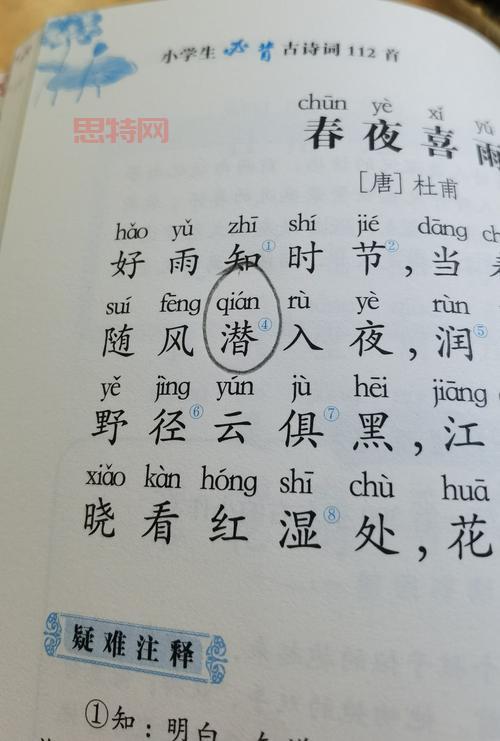 小学生必背古诗词112首
思特网
chūn yè xǐ yǔ
春夜喜雨
[唐]杜甫
hǎo yǔ zhī shí jié dāng
好雨知①时节②,当
suí fēng qián rù yè rùn
随风潜④入夜,润⑤
yě jìng yún jù hēi jiāng
野径⑥云俱⑦黑,江
xiǎo kàn hóng shī chù huā
晓看红湿⑧处,花
疑难注释
①知:明白